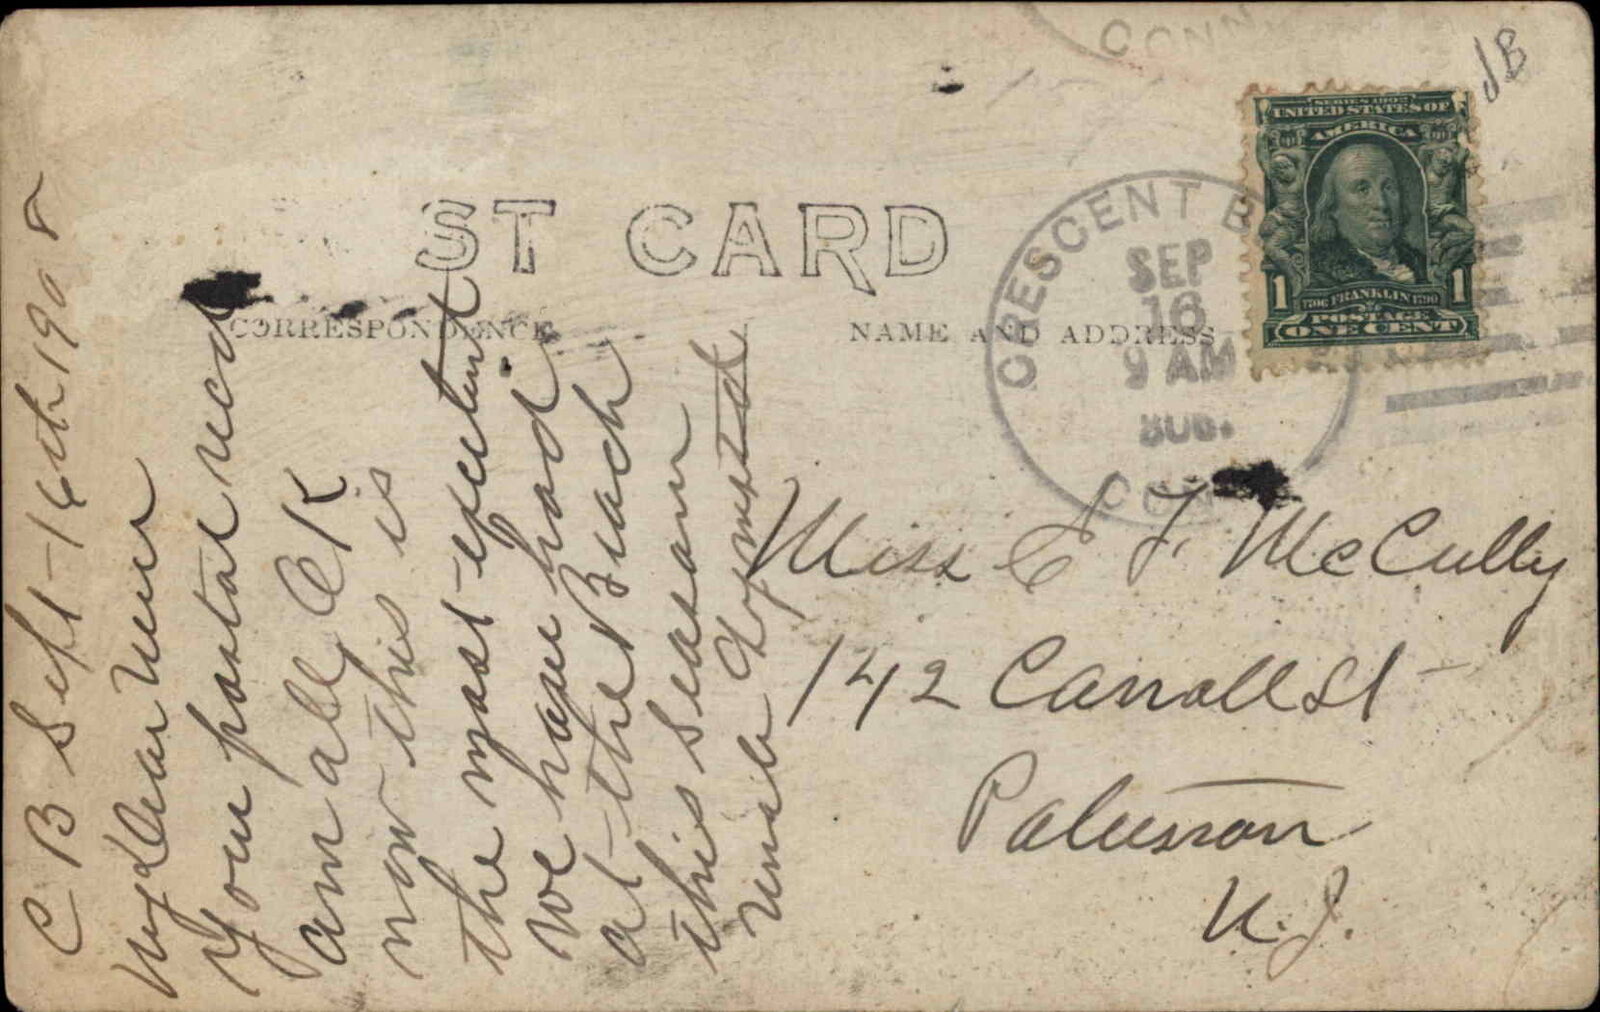 C B Sept-16th 1908
My Dear Niece
Your postal recd
am all OK
now this is
the most
We have had
at the Beach
this season
Uncle
ST CARD
CORRESPONDENCE
NAME AND ADDRESS
CONN.
CRESCENT B
SEP
16
9 AM
CONN
SERIES 1902
UNITED STATES OF
AMERICA
1 1706 FRANKLIN 1790 1
POSTAGE
ONE CENT
Miss E F. McCully
142 Carroll St
Paterson
N. J.